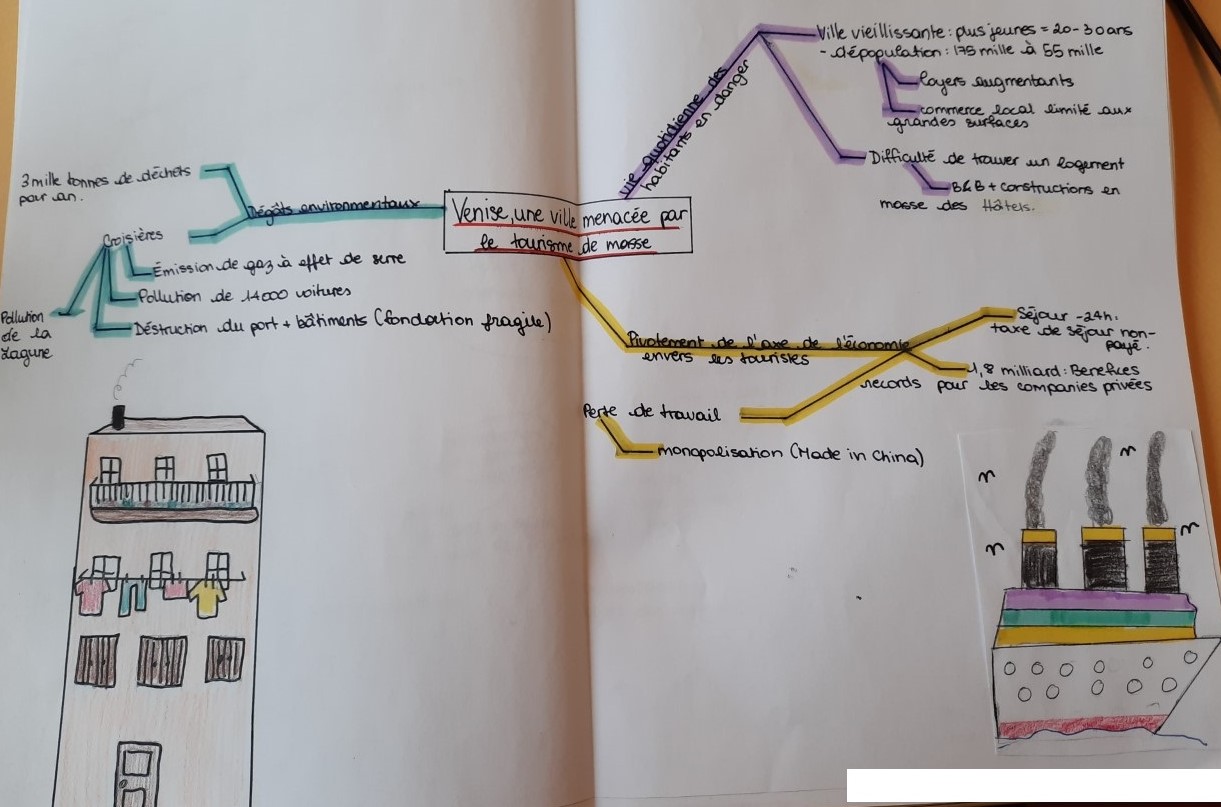 Venise, une ville menacée par
le tourisme de masse
Vie quotidienne des
habitants en danger
Ville vieillissante : plus jeunes = 20-30 ans
- dépopulation : 175 mille à 55 mille
loyers augmentants
commerce local limité aux
grandes surfaces
Difficulté de trouver un logement
B&B + constructions en
masse des Hâtels.
Dégâts environmentaux
3 mille tonnes de déchets
par an.
Croisières
Émission de gaz à effet de serre
Pollution de 14000 voitures
Déstruction du port + bâtiments (fondation fragile)
Pollution
de la
Lagune
Pivotement de l'axe de l'économie
envers les touristes
Séjour -24h :
taxe de séjour non-
payé.
1,8 milliard : Benefices
records pour les companies privées
Perte de travail
monopolisation (Made in China)